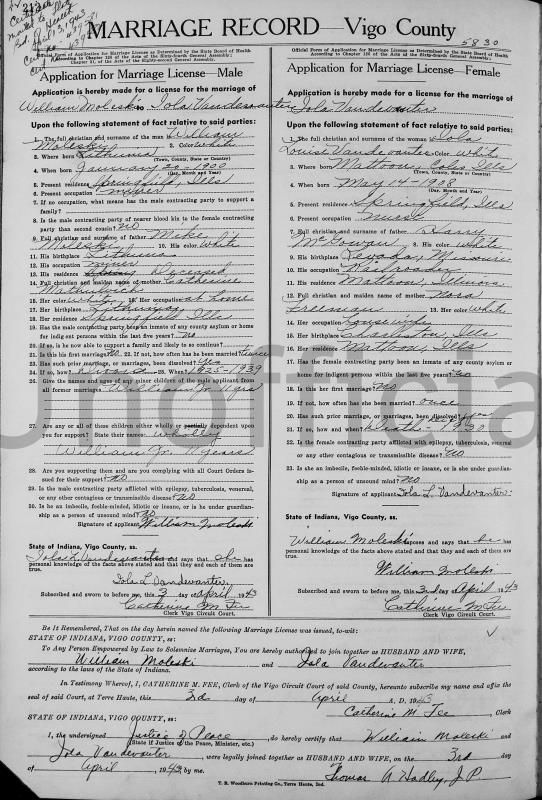 MARRIAGE RECORD — Vigo County
5830
Official Form of Application for Marriage License as Determined by the State Board of Health
Application for Marriage License—Male
Application is hereby made for a license for the marriage of
William Moleski Iola Vandevanter
Upon the following statement of fact relative to said parties:
1. The full christian and surname of the man William
Molesky 2. Color White
3. Where born Lithunia
(Town, County, State or Country)
4. When born January 20 - 1900
(Day, Month and Year)
5. Present residence Springfield, Ills
6. Present occupation miner
7. If no occupation, what means has the male contracting party to support a
family?
8. Is the male contracting party of nearer blood kin to the female contracting
party than second cousin? No
9. Full christian and surname of father Mike
Moleski 10. His color White
11. His birthplace Lithunia
12. His occupation miner
13. His residence Deceased
14. Full christian and maiden name of mother Catherine
15. Her color White 16. Her occupation at home
17. Her birthplace
18. Her residence Springfield Ills
19. Has the male contracting party been an inmate of any county asylum or home
for indigent persons within the last five years? No
20. If so, is he now able to support a family and likely to so continue?
21. Is this his first marriage? No 22. If not, how often has he been married? twice
23. Has such prior marriage, or marriages, been dissolved? yes
24. If so, how? Divorce 25. When? 1925-1939
26. Give the names and ages of any minor children of the male applicant from
all former marriages William Jr. 11 yrs
27. Are any or all of these children either wholly or partially dependent upon
you for support? State their names: wholly
William Jr. 11 years
28. Are you supporting them and are you complying with all Court Orders is-
sued for their support? No
29. Is the male contracting party afflicted with epilepsy, tuberculosis, venereal,
or any other contagious or transmissible disease? No
30. Is he an imbecile, feeble-minded, idiotic or insane, or is he under guardian-
ship as a person of unsound mind? No
Signature of applicant William Moleski
State of Indiana, Vigo County, ss.
Iola L Vandevanter deposes and says that she has
personal knowledge of the facts above stated and that they and each of them are
true.
Iola L Vandevanter
Subscribed and sworn to before me, this 3 day of April 1943
Catherine M. Fee
Clerk Vigo Circuit Court.
Official Form of Application for Marriage License as Determined by the State Board of Health
Application for Marriage License—Female
Application is hereby made for a license for the marriage of
Iola Vandevanter
Upon the following statement of fact relative to said parties:
1. The full christian and surname of the woman Iola
Louise Vandevanter Color White
3. Where born Mattoon, Coles Ills
(Town, County, State or Country)
4. When born May 14 - 1908
(Day, Month and Year)
5. Present residence Springfield, Ills
6. Present occupation nurse
7. Full christian and surname of father Harry
McGowan 8. His color White
9. His birthplace Nevada, Missouri
10. His occupation Railroader
11. His residence Mattoon, Illinois
12. Full christian and maiden name of mother Nora
Freeman 13. Her color White
14. Her occupation housewife
15. Her birthplace Charleston, Ills
16. Her residence Mattoon, Ills
17. Has the female contracting party been an inmate of any county asylum or
home for indigent persons within the last five years? No
18. Is this her first marriage? No
19. If not, how often has she been married? once
20. Has such prior marriage, or marriages, been dissolved? yes
21. If so, how and when? Death - 1930
22. Is the female contracting party afflicted with epilepsy, tuberculosis, venereal
or any other contagious or transmissible disease? No
23. Is she an imbecile, feeble-minded, idiotic or insane, or is she under guardian-
ship as a person of unsound mind? No
Signature of applicant Iola L. Vandevanter
State of Indiana, Vigo County, ss.
William Moleski deposes and says that he has
personal knowledge of the facts above stated and that they and each of them are
true.
William Moleski
Subscribed and sworn to before me, this 3rd day of April 1943
Catherine M. Fee
Clerk Vigo Circuit Court.
Be It Remembered, That on the day herein named the following Marriage License was issued, to-wit:
STATE OF INDIANA, VIGO COUNTY, ss:
To Any Person Empowered by Law to Solemnize Marriages, You are hereby authorized to join together as HUSBAND AND WIFE,
William Moleski and Iola Vandevanter
according to the laws of the State of Indiana.
In Testimony Whereof, I, CATHERINE M. FEE, Clerk of the Vigo Circuit Court of said County, hereunto subscribe my name and affix the
seal of said Court, at Terre Haute, this 3rd day of April A. D. 1943
Catherine M. Fee, Clerk
STATE OF INDIANA, VIGO COUNTY, ss:
I, the undersigned Justice of Peace, do hereby certify that William Moleski and
(State if Justice of the Peace, Minister, etc.)
Iola Vandevanter, were legally joined together as HUSBAND AND WIFE, on the 3rd day
of April, 1943, by me. Thomas A. Hadley, J.P.
T. R. Woodburn Printing Co., Terre Haute, Ind.
Unofficial